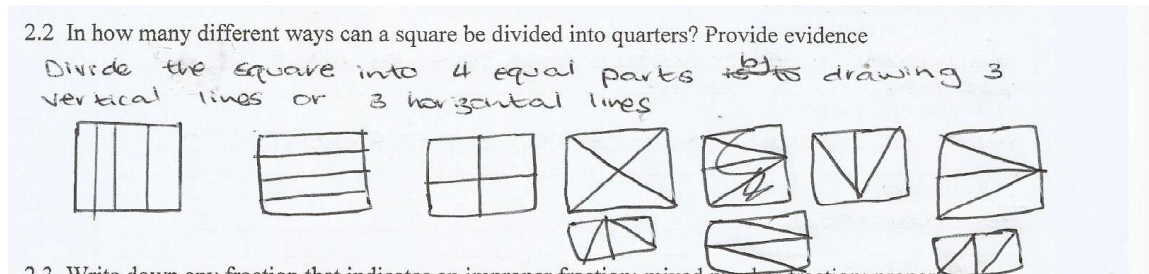 2.2 In how many different ways can a square be divided into quarters? Provide evidence
Divide the square into 4 equal parts by drawing 3
vertical lines or 3 horizontal lines